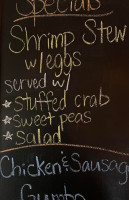 Specials
Shrimp Stew
w/eggs
served w/
★ stuffed crab
★ sweet peas
★ Salad
Chicken & Sausag
Gumbo